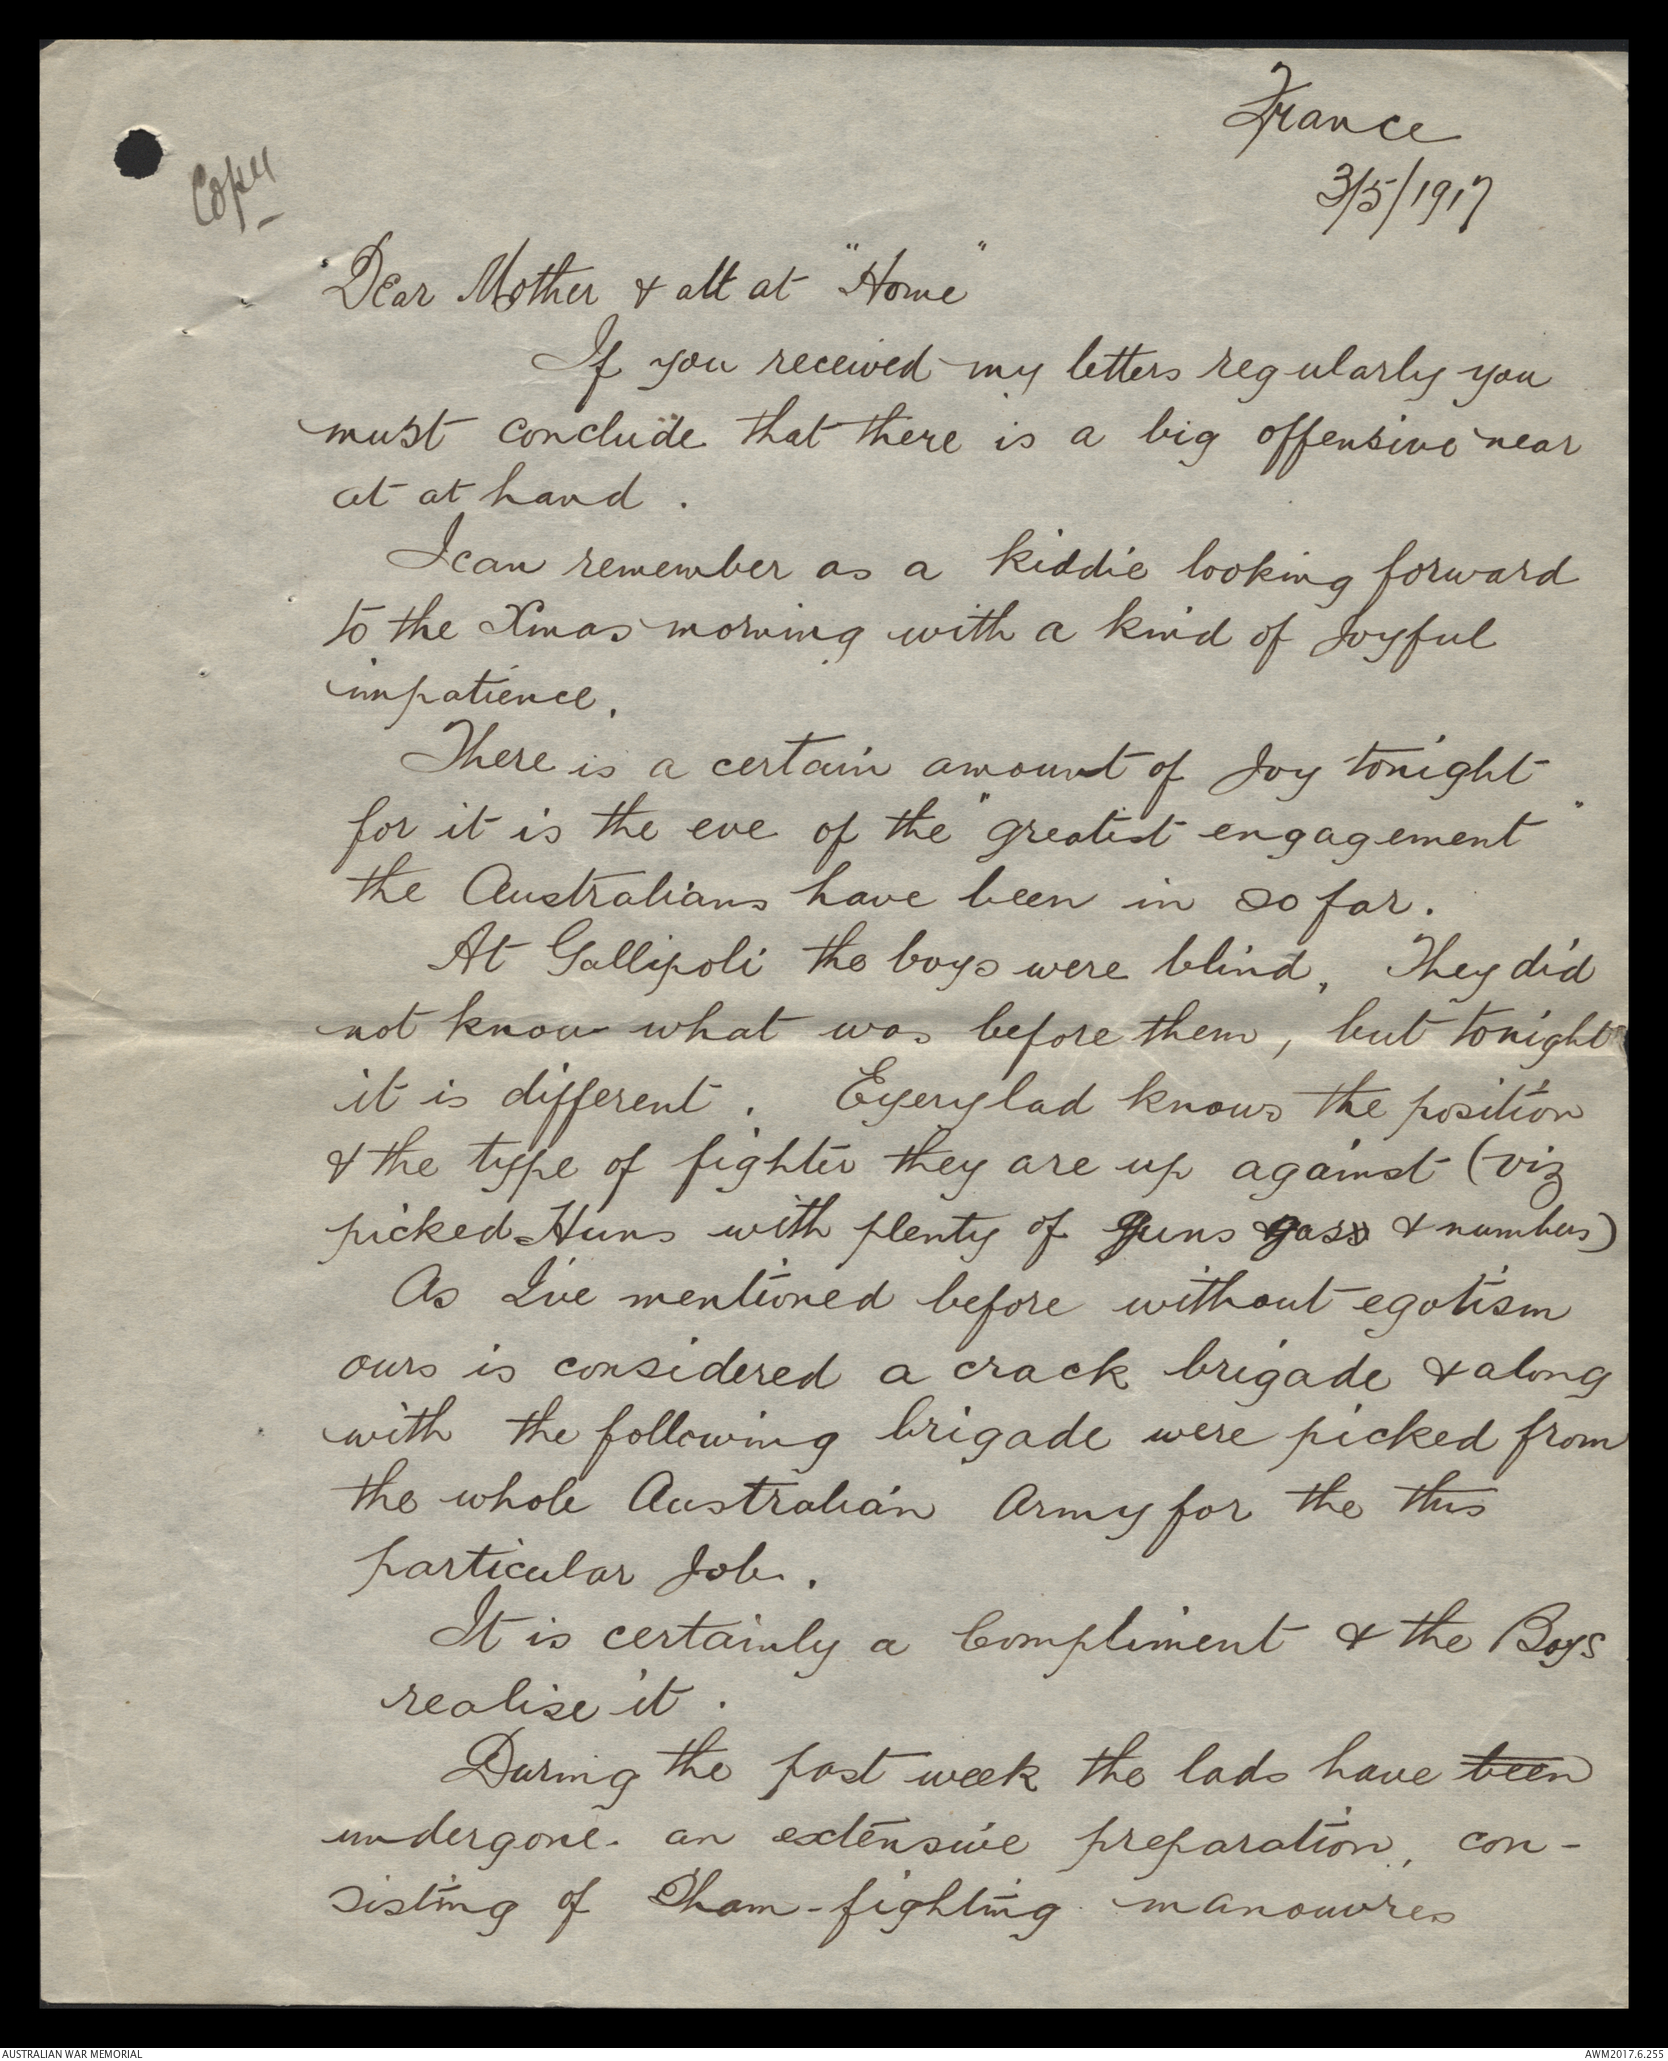 France
3/5/1917
Copy
Dear Mother & all at "Home"
If you received my letters regularly you
must conclude that there is a big offensive near
at at hand.
I can remember as a kiddie looking forward
to the Xmas morning with a kind of Joyful
impatience.
There is a certain amount of Joy tonight
for it is the eve of the "greatest engagement"
the Australians have been in so far.
At Gallipoli the boys were blind. They did
not know what was before them, but tonight
it is different. Every lad knows the position
& the type of fighter they are up against (viz
picked Huns with plenty of guns gass & numbers)
As I've mentioned before without egotism
ours is considered a crack brigade & along
with the following brigade were picked from
the whole Australian Army for the this
particular Job.
It is certainly a Compliment & the Boys
realise it.
During the past week the lads have been
undergone an extensive preparation, con-
sisting of Sham-fighting manouvres
AUSTRALIAN WAR MEMORIAL
AWM2017.6.255